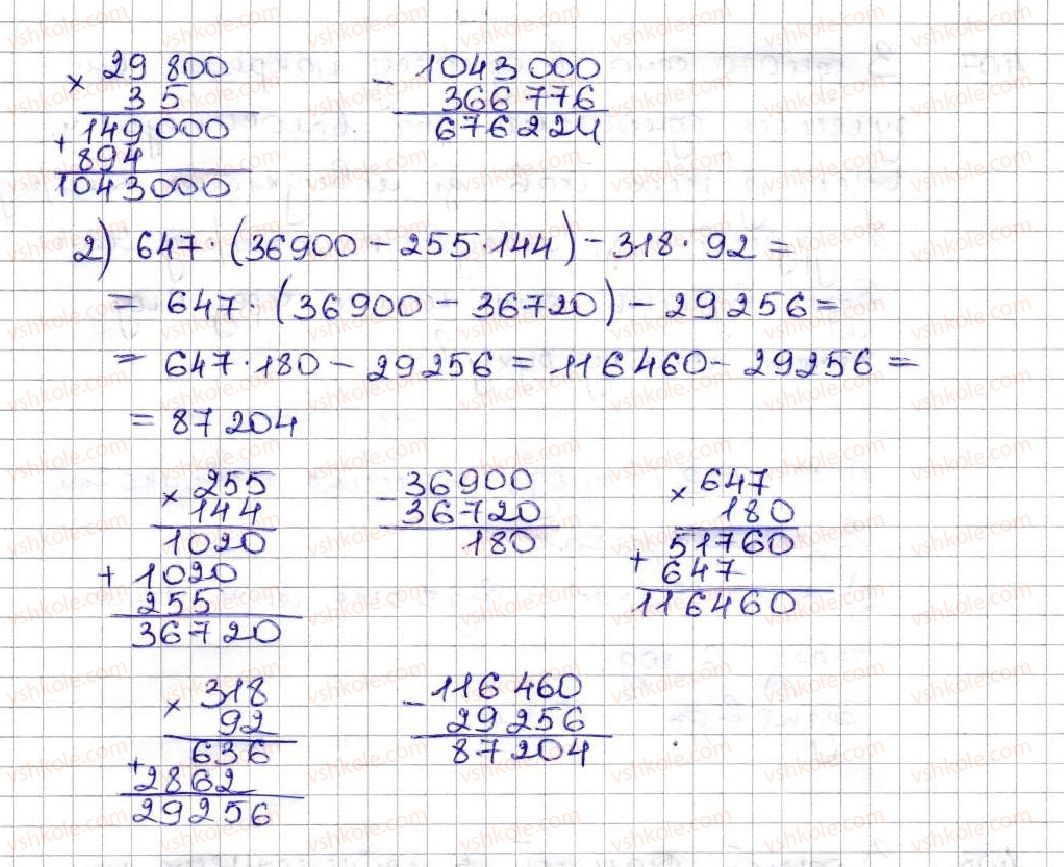 × 29 800
35
+ 149 000
894
1043000
- 1043 000
366 776
676 224
2) 647 · (36900 - 255 · 144) - 318 · 92 =
= 647 · (36900 - 36720) - 29256 =
= 647 · 180 - 29256 = 116460 - 29256 =
= 87 204
× 255
144
1020
+ 1020
255
36720
- 36900
36720
180
× 647
180
+ 51760
647
116460
× 318
92
+ 636
2862
29256
- 116 460
29256
87204
vshkole.com